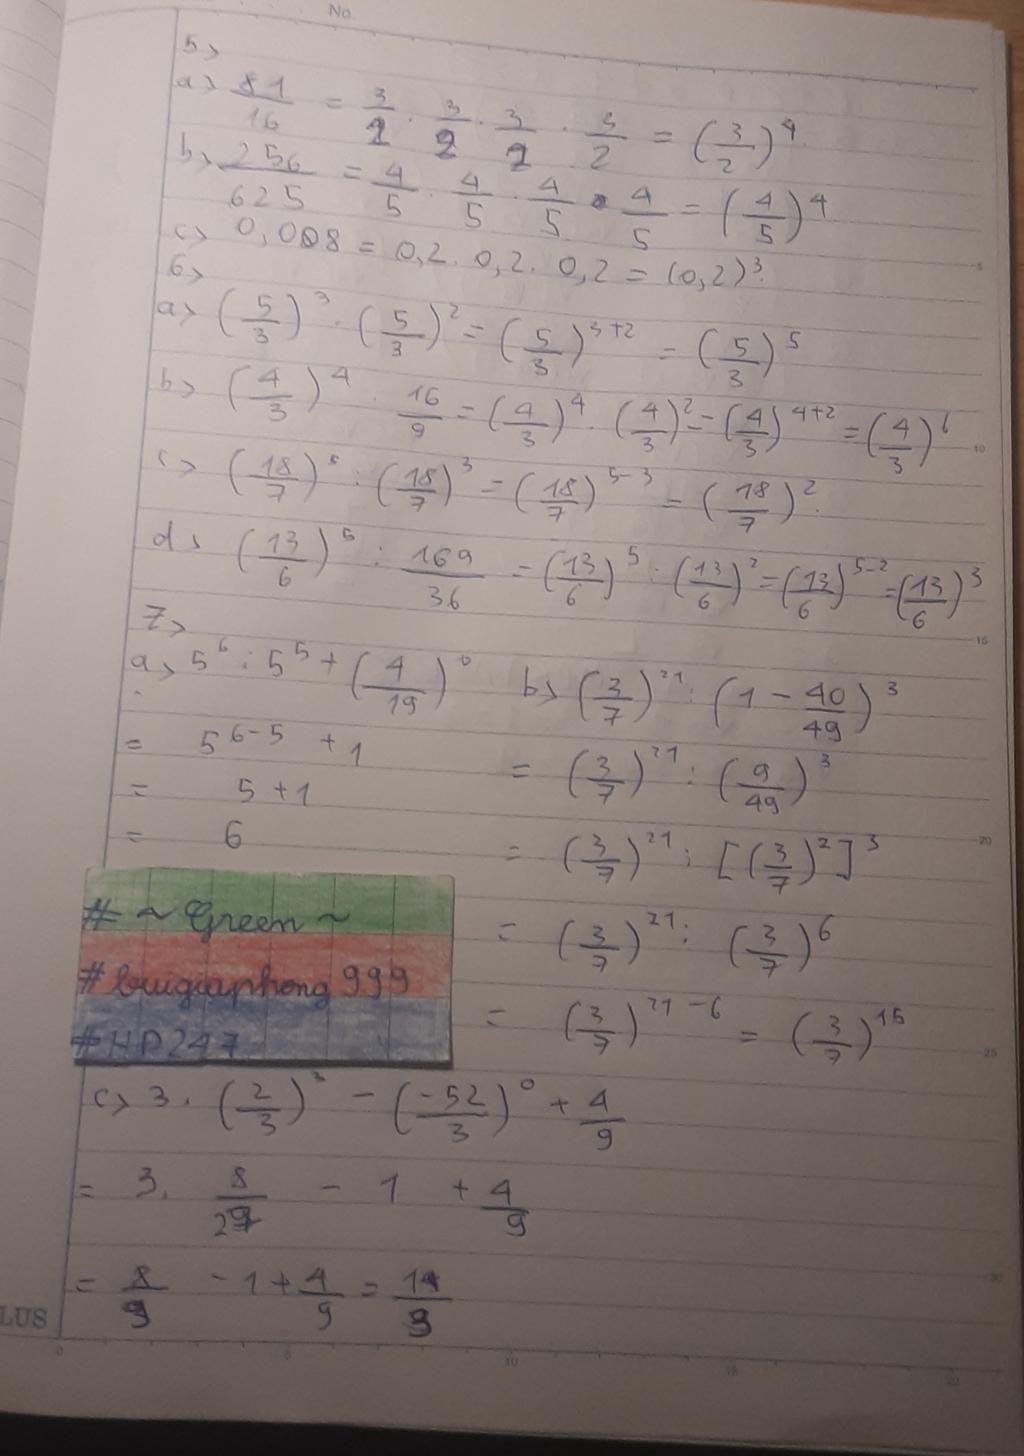 No.
5>
a> 81/16 = 3/2 . 3/2 . 3/2 . 3/2 = (3/2)^4.
b> 256/625 = 4/5 . 4/5 . 4/5 . 4/5 = (4/5)^4
c> 0,008 = 0,2 . 0,2 . 0,2 = (0,2)^3.
6>
a> (5/3)^3 . (5/3)^2 = (5/3)^3+2 = (5/3)^5
b> (4/3)^4 . 16/9 = (4/3)^4 . (4/3)^2 = (4/3)^4+2 = (4/3)^6
c> (18/7)^5 : (18/7)^3 = (18/7)^5-3 = (18/7)^2.
d> (13/6)^5 : 169/36 = (13/6)^5 : (13/6)^2 = (13/6)^5-2 = (13/6)^3
7>
a> 5^6 : 5^5 + (4/19)^0
= 5^6-5 + 1
= 5 + 1
= 6
b> (3/7)^21 : (1 - 40/49)^3
= (3/7)^21 : (9/49)^3
= (3/7)^21 : [(3/7)^2]^3
= (3/7)^21 : (3/7)^6
= (3/7)^21-6 = (3/7)^15
# ~ Green ~
# buigiaphong999
#HP247
c> 3 . (2/3)^3 - (-52/3)^0 + 4/9
= 3 . 8/27 - 1 + 4/9
= 8/9 - 1 + 4/9 =
LUS
5
10
15
20
25
30
0 5 10 15 20